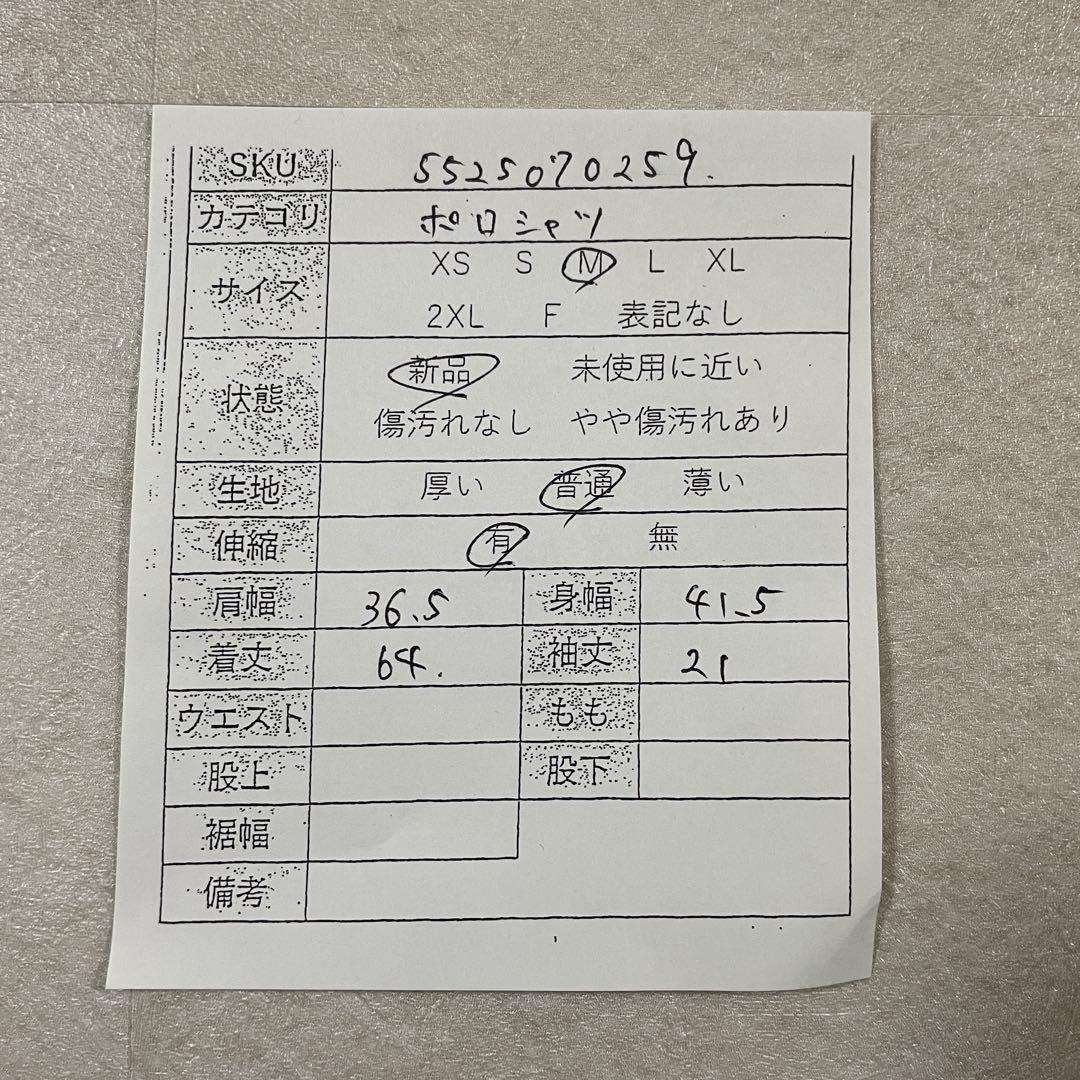 SKU 5525070259.
カテゴリ ポロシャツ
サイズ XS S M L XL
2XL F 表記なし
状態 新品 未使用に近い
傷汚れなし やや傷汚れあり
生地 厚い 普通 薄い
伸縮 有 無
肩幅 36.5 身幅 41.5
着丈 64. 袖丈 21
ウエスト もも
股上 股下
裾幅
備考